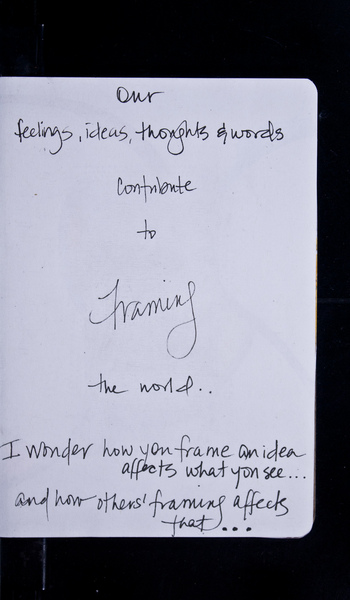 Our
feelings, ideas, thoughts & words
contribute
to
framing
the world..
I wonder how you frame an idea
affects what you see...
and how others' framing affects
that...